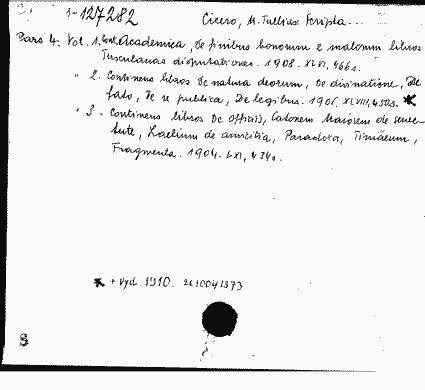 1-127282 Cicero, M. Tullius: Scripta...
Pars 4. Vol. 1. Cont. Academica, De finibus bonorum e malorum libros
Tusculanas disputationes. 1908. XLVI, 466 s.
" 2. Continens libros De natura deorum, De divinatione, De
fato, De re publica, De legibus. XLVIII, 450 s. *
" 3. Continens libros De officiis, Catonem Maiorem de senec-
tute, Laelium de amicitia, Paradoxa, Timaeum,
Fragmenta. 1904. LXI, 434 s.
* + Vyd. 1910. 2610041373